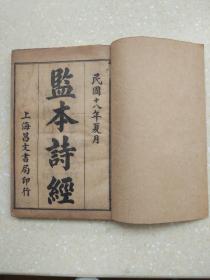 民國十八年夏月
監本詩經
上海昌文書局印行